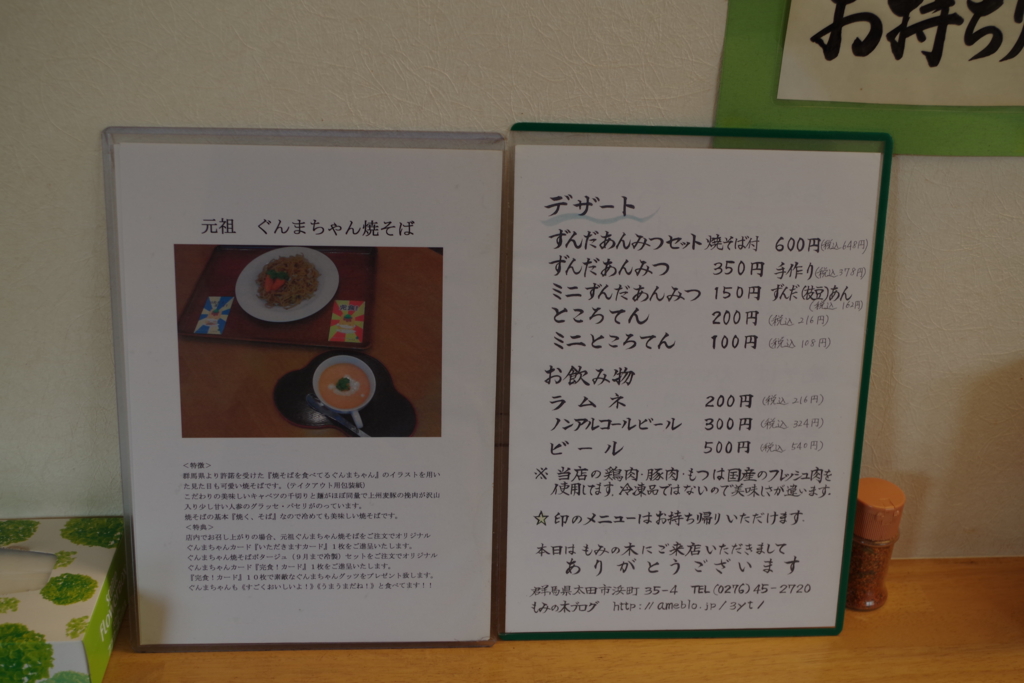 お持ち
元祖　ぐんまちゃん焼そば
＜特徴＞
群馬県より許諾を受けた『焼そばを食べてるぐんまちゃん』のイラストを用い
た見た目も可愛い焼そばです。（テイクアウト用包装紙）
こだわりの美味しいキャベツの千切りと麺がほぼ同量で上州麦豚の挽肉が沢山
入り少し甘い人参のグラッセ・パセリがのっています。
焼そばの基本『焼く、そば』なので冷めても美味しい焼そばです。
＜特典＞
店内でお召し上がりの場合、元祖ぐんまちゃん焼そばをご注文でオリジナル
ぐんまちゃんカード『いただきますカード』１枚をご進呈いたします。
ぐんまちゃん焼そばポタージュ（９月まで冷製）セットをご注文でオリジナル
ぐんまちゃんカード『完食！カード』１枚をご進呈いたします。
『完食！カード』１０枚で素敵なぐんまちゃんグッズをプレゼント致します。
ぐんまちゃんも《すごくおいしいよ！》《うまうまだね！》と食べてます！！
デザート
ずんだあんみつセット 焼そば付 600円(税込648円)
ずんだあんみつ 350円 手作り(税込378円)
ミニずんだあんみつ 150円 ずんだ(枝豆)あん
(税込 162円)
ところてん 200円 (税込 216円)
ミニところてん 100円 (税込 108円)
お飲み物
ラムネ 200円 (税込 216円)
ノンアルコールビール 300円 (税込 324円)
ビール 500円 (税込 540円)
※ 当店の鶏肉・豚肉・もつは国産のフレッシュ肉を
使用してます。冷凍品ではないので美味しさが違います。
☆印のメニューはお持ち帰りいただけます。
本日は もみの木にご来店いただきまして
ありがとうございます
群馬県太田市浜町 35-4 TEL(0276)45-2720
もみの木ブログ http://ameblo.jp/3yt/